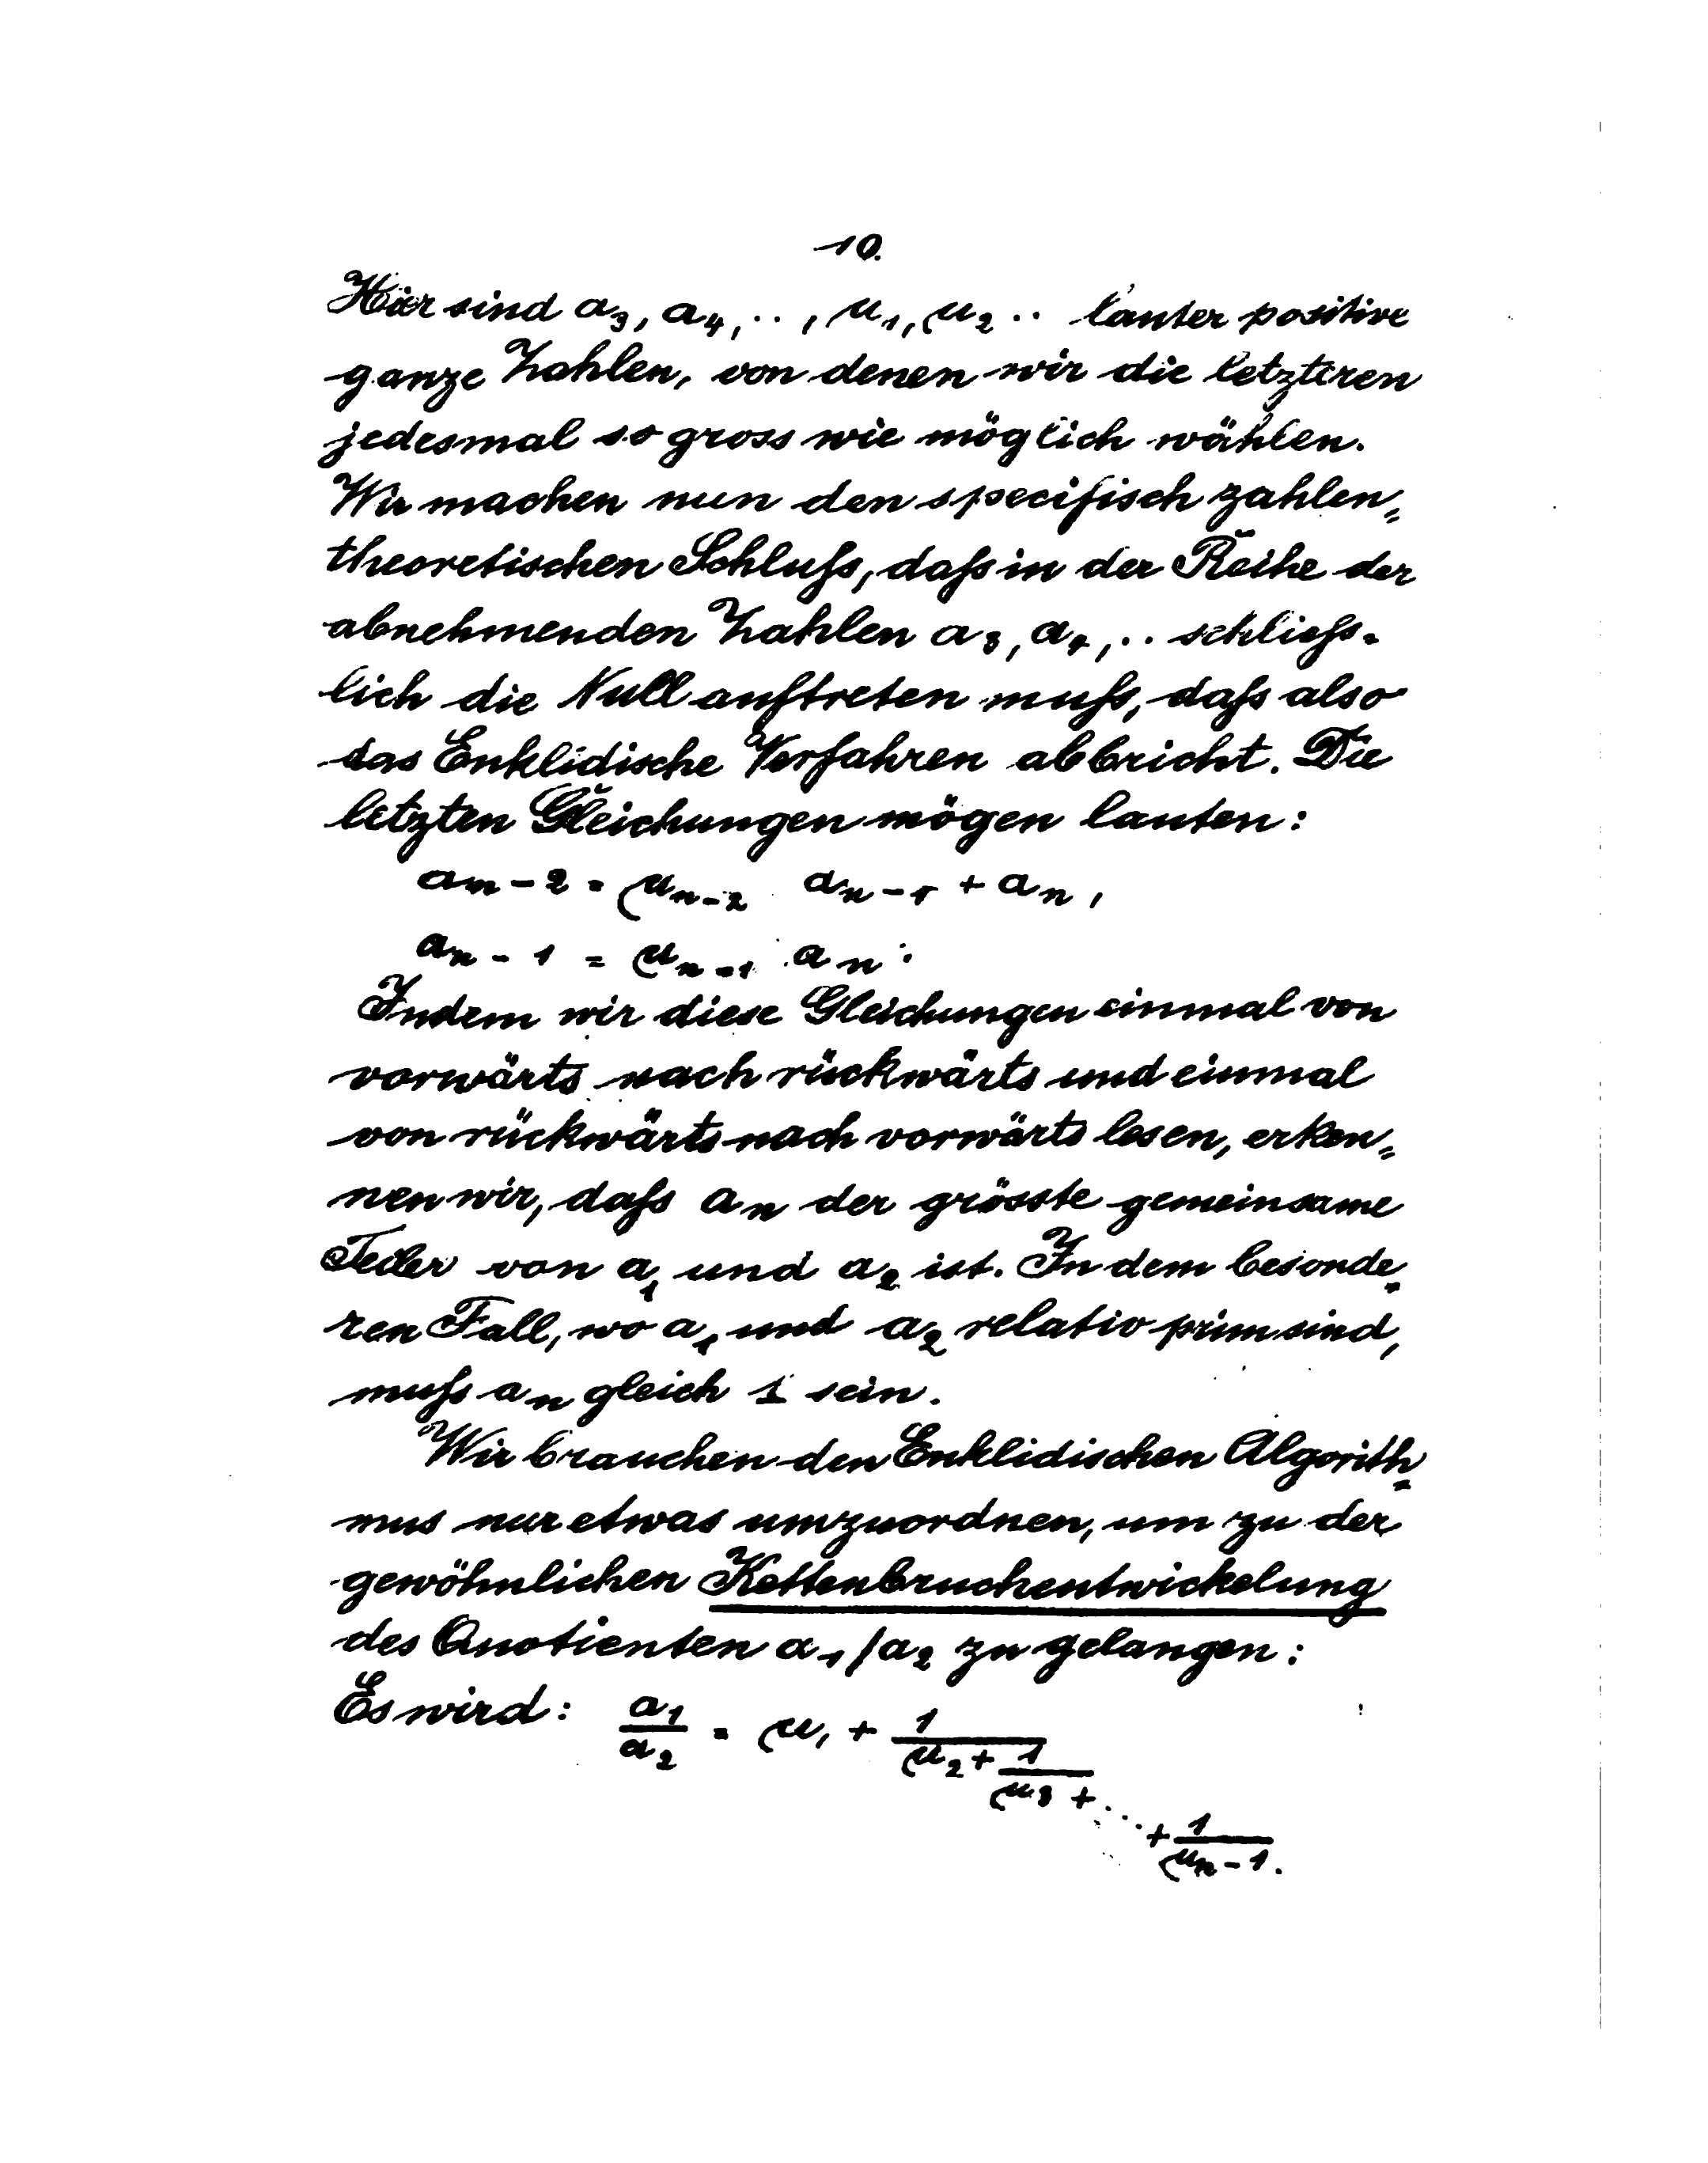 10.
Hier sind a₃, a₄, .., μ₁, μ₂ .. lauter positive
ganze Zahlen, von denen wir die letzteren
jedesmal so gross wie möglich wählen.
Wir machen nun den specifisch zahlen„
theoretischen Schluſs, daſs in der Reihe der
abnehmenden Zahlen a₃, a₄, .. schlieſs-
lich die Null auftreten muſs, daſs also
das Euklidische Verfahren abbricht. Die
letzten Gleichungen mögen lauten:
aₙ₋₂ = μₙ₋₂ aₙ₋₁ + aₙ,
aₙ₋₁ = μₙ₋₁ aₙ.
Indem wir diese Gleichungen einmal von
vorwärts nach rückwärts und einmal
von rückwärts nach vorwärts lesen, erken„
nen wir, daſs aₙ der grösste gemeinsame
Teiler von a₁ und a₂ ist. In dem besonde„
ren Fall, wo a₁ und a₂ relativ prim sind,
muſs aₙ gleich 1 sein.
Wir brauchen den Euklidischen Algorith„
mus nur etwas umzuordnen, um zu der
gewöhnlichen Kettenbruchentwickelung
des Quotienten a₁/a₂ zu gelangen:
Es wird: a₁/a₂ = μ₁ + 1/(μ₂ + 1/(μ₃ + ... + 1/μₙ₋₁.